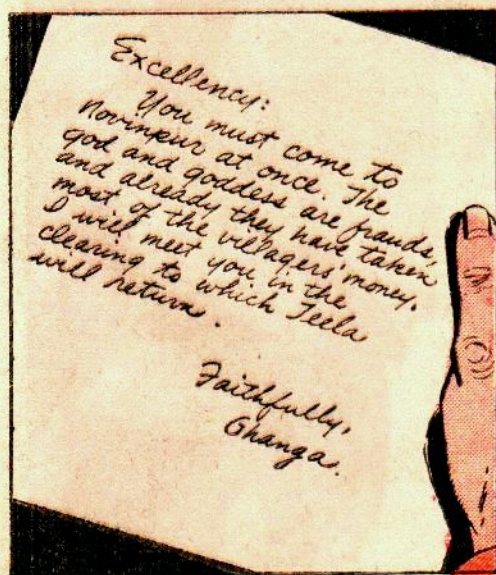 Excellency:
You must come to
Novinpur at once. The
god and goddess are frauds,
and already they have taken
most of the villagers' money.
I will meet you in the
clearing to which Teela
will return.
Faithfully,
Ghanga.